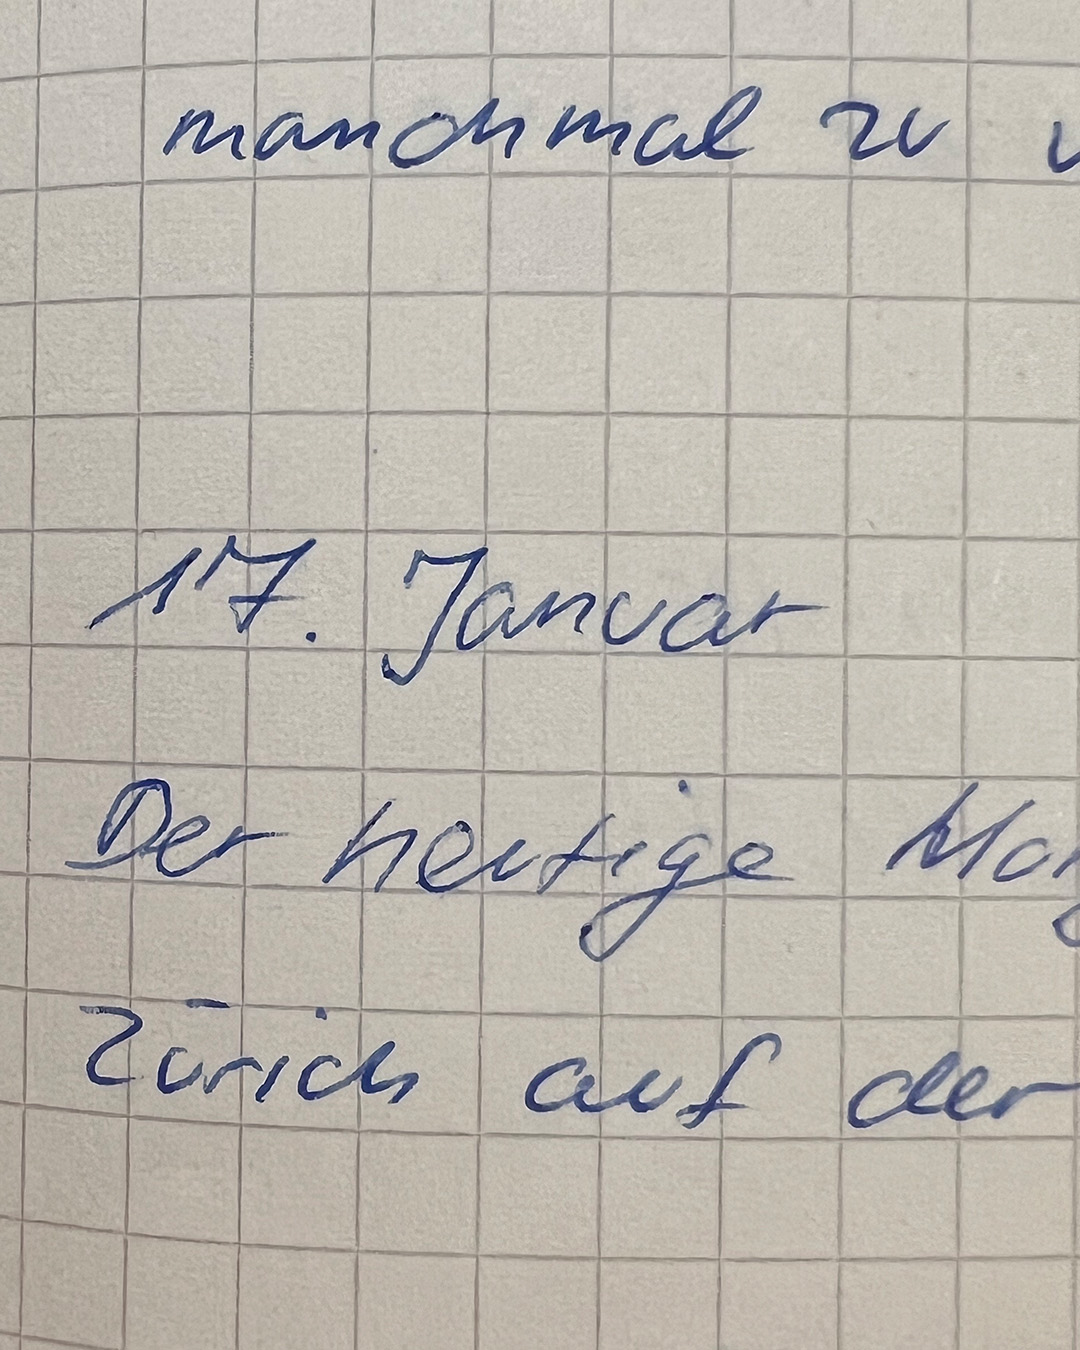 manchmal zu
17. Januar
Der heutige
Zürich auf der